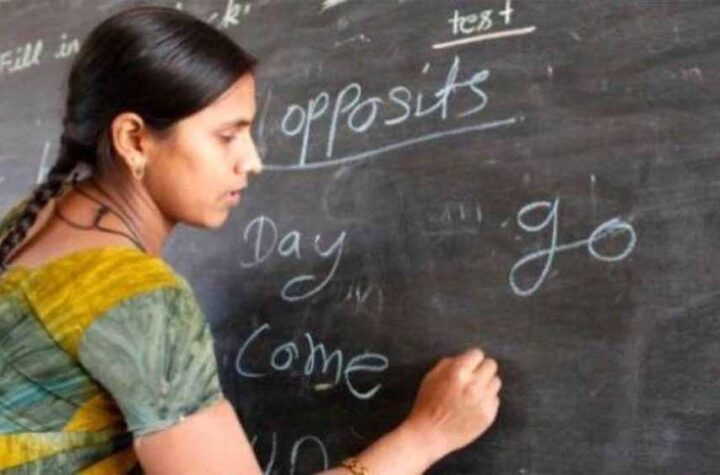 test
Fill in
opposits
Day go
Come